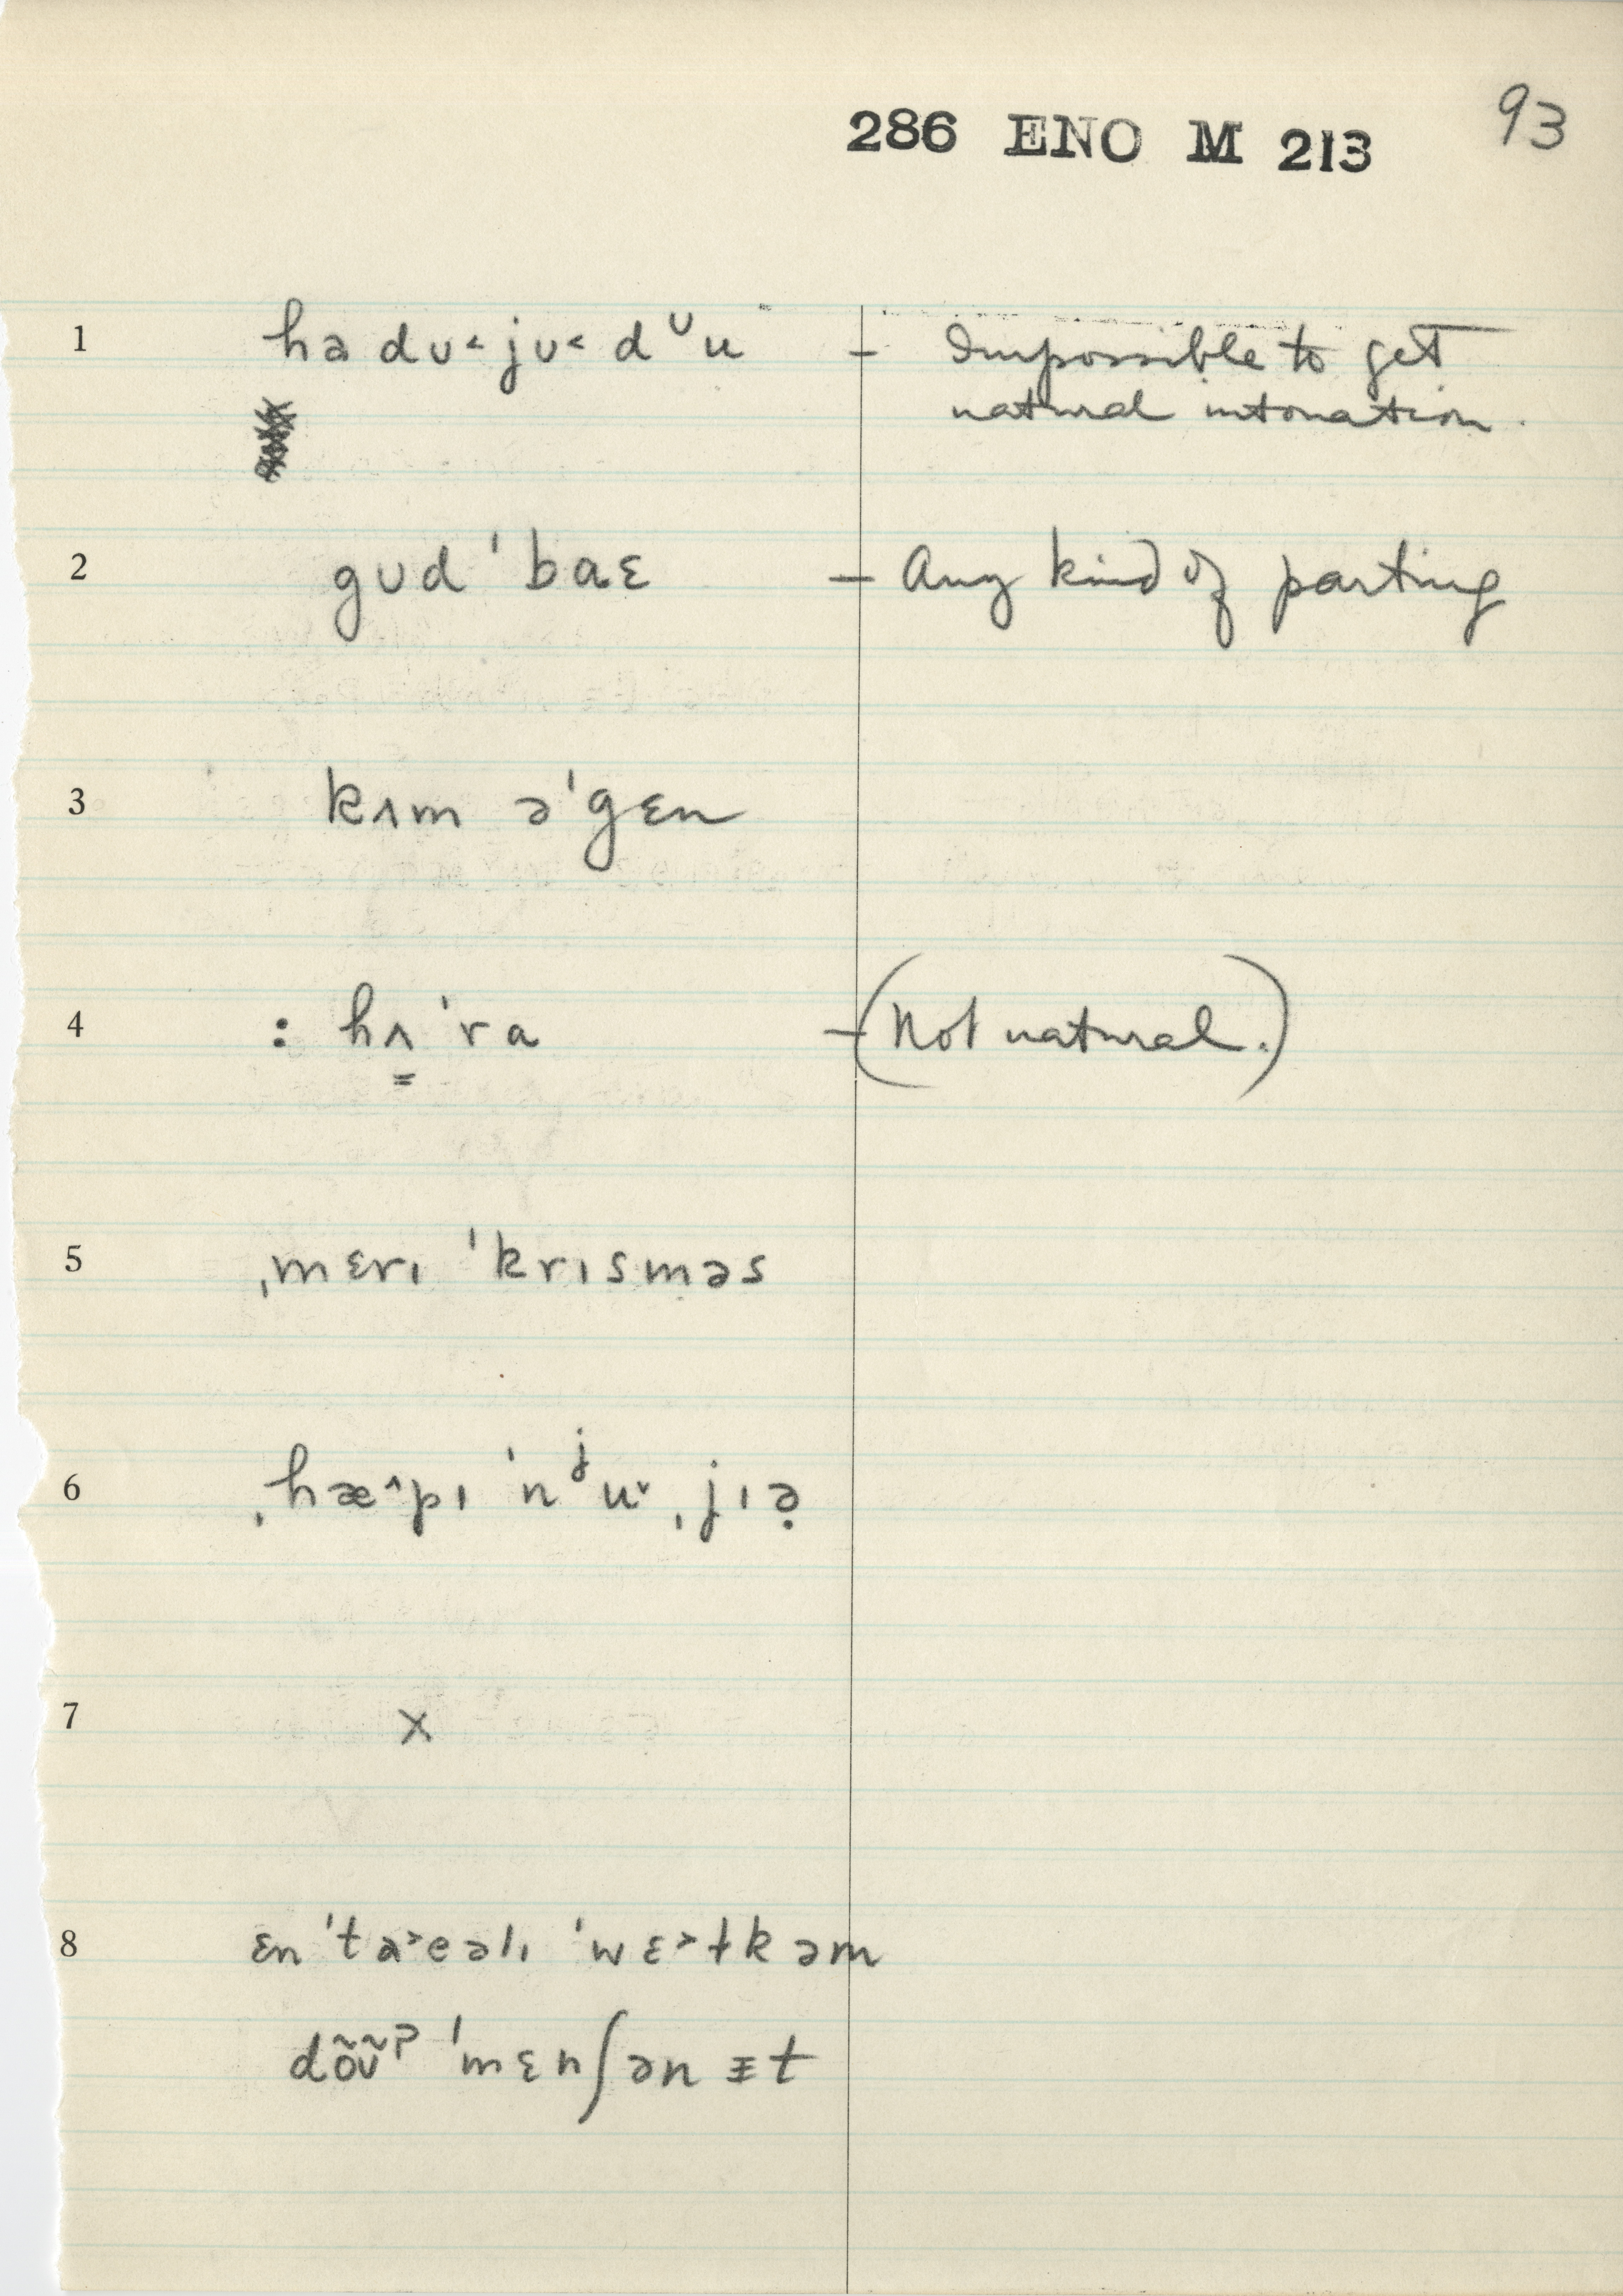 286 ENO M 213 93
1 hə dʊ˂ jʊ˂ dᶸu – Impossible to get
natural intonation.
2 gʊd ˈbaɛ – Any kind of parting
3 kʌm əˈgɛn
4 : hʌ̳ ˈra – (Not natural.)
5 ˌmɛrɪ ˈkrɪsməs
6 ˌhæ^pɪ ˈnʲu˅ ˌjɪə̣
7 x
8 ɛn ˈta˃eəlɪ ˈwɛ˃ɫkəm
dõʊ̃ˀ ˈmɛnʃən ɪ̵t